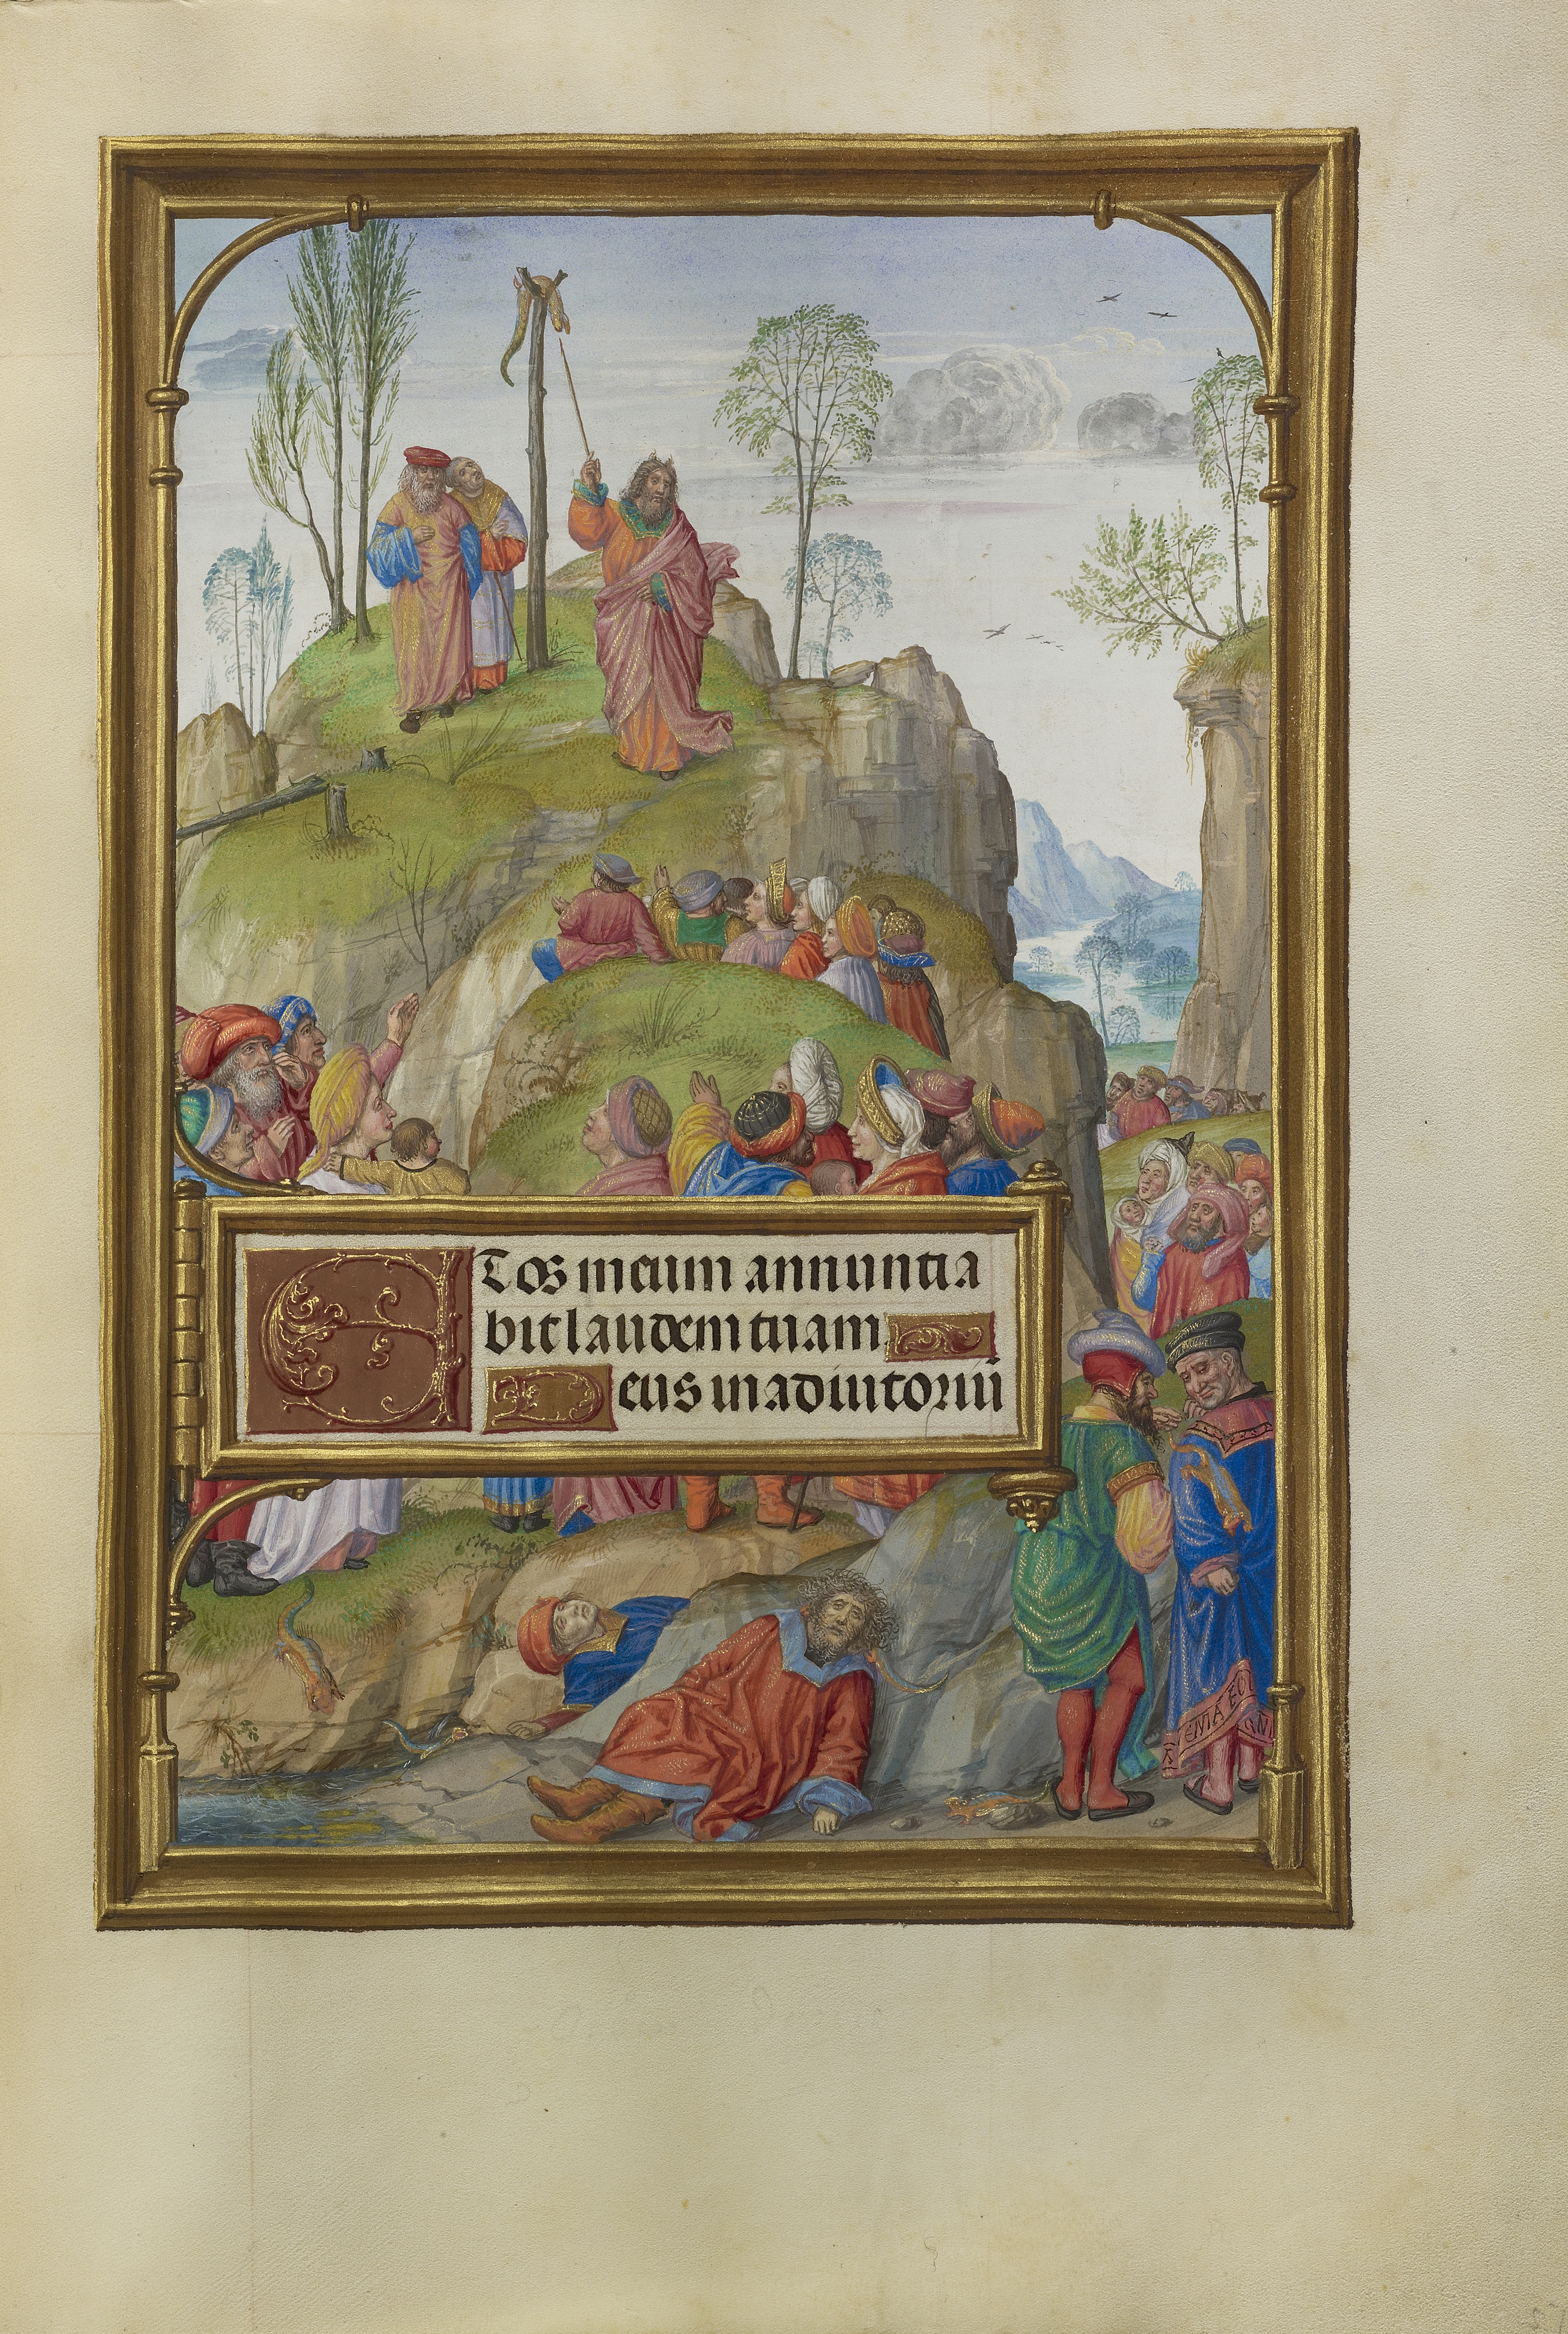 ET os meum annuntia
bit laudem tuam
Deus in adiutoriū